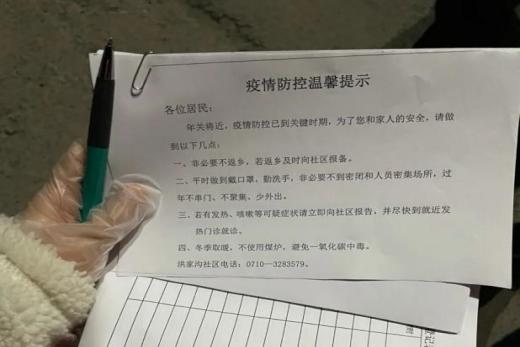 疫情防控温馨提示
各位居民：
年关将近，疫情防控已到关键时期，为了您和家人的安全，请做
到以下几点：
一、非必要不返乡，若返乡及时向社区报备。
二、平时做到戴口罩、勤洗手，非必要不到密闭和人员密集场所，过
年不串门、不聚集、少外出。
三、若有发热、咳嗽等可疑症状请立即向社区报告，并尽快到就近发
热门诊就诊。
四、冬季取暖，不使用煤炉，避免一氧化碳中毒。
洪家沟社区电话：0710—3283579。